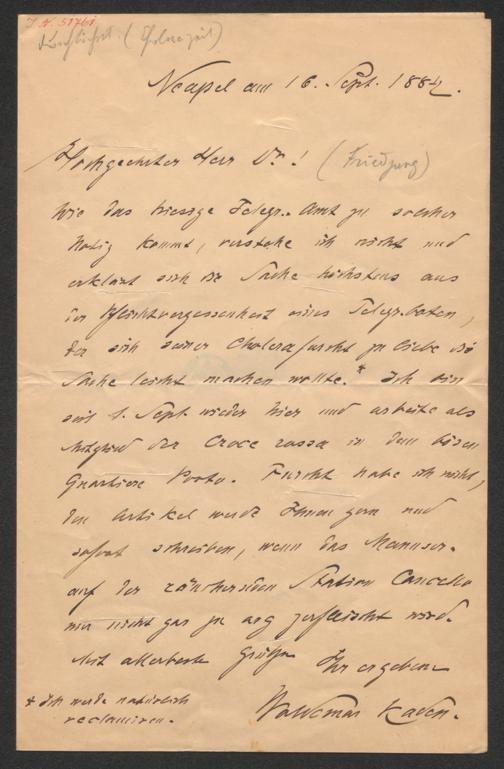 J. N. 51761
durchlöchert. (Cholerazeit)
Neapel am 16. Sept. 1884.
Hochgeehrter Herr Dr.! (Friedjung)
Wie das hiesige Telegr.-Amt zu solcher
Notiz kommt, verstehe ich nicht und
erklärt sich die Sache höchstens aus
der Pflichtvergessenheit eines Telegr.boten,
der sich seiner Cholerafurcht zu liebe die
Sache leicht machen wollte.* Ich bin
seit 1. Sept. wieder hier und arbeite als
Mitglied der Croce rossa in dem bösen
Quartiere Porto. Furcht habe ich nicht,
den Artikel werde Ihnen gern und
sofort schreiben, wenn das Manuscr.
auf der räuchernden Station Cancello
mir nicht gar zu arg zerfleischt wird.
Mit allerbesten Grüßen
Ihr ergebener
Woldemar Kaden.
* Ich werde natürlich
reclamiren.